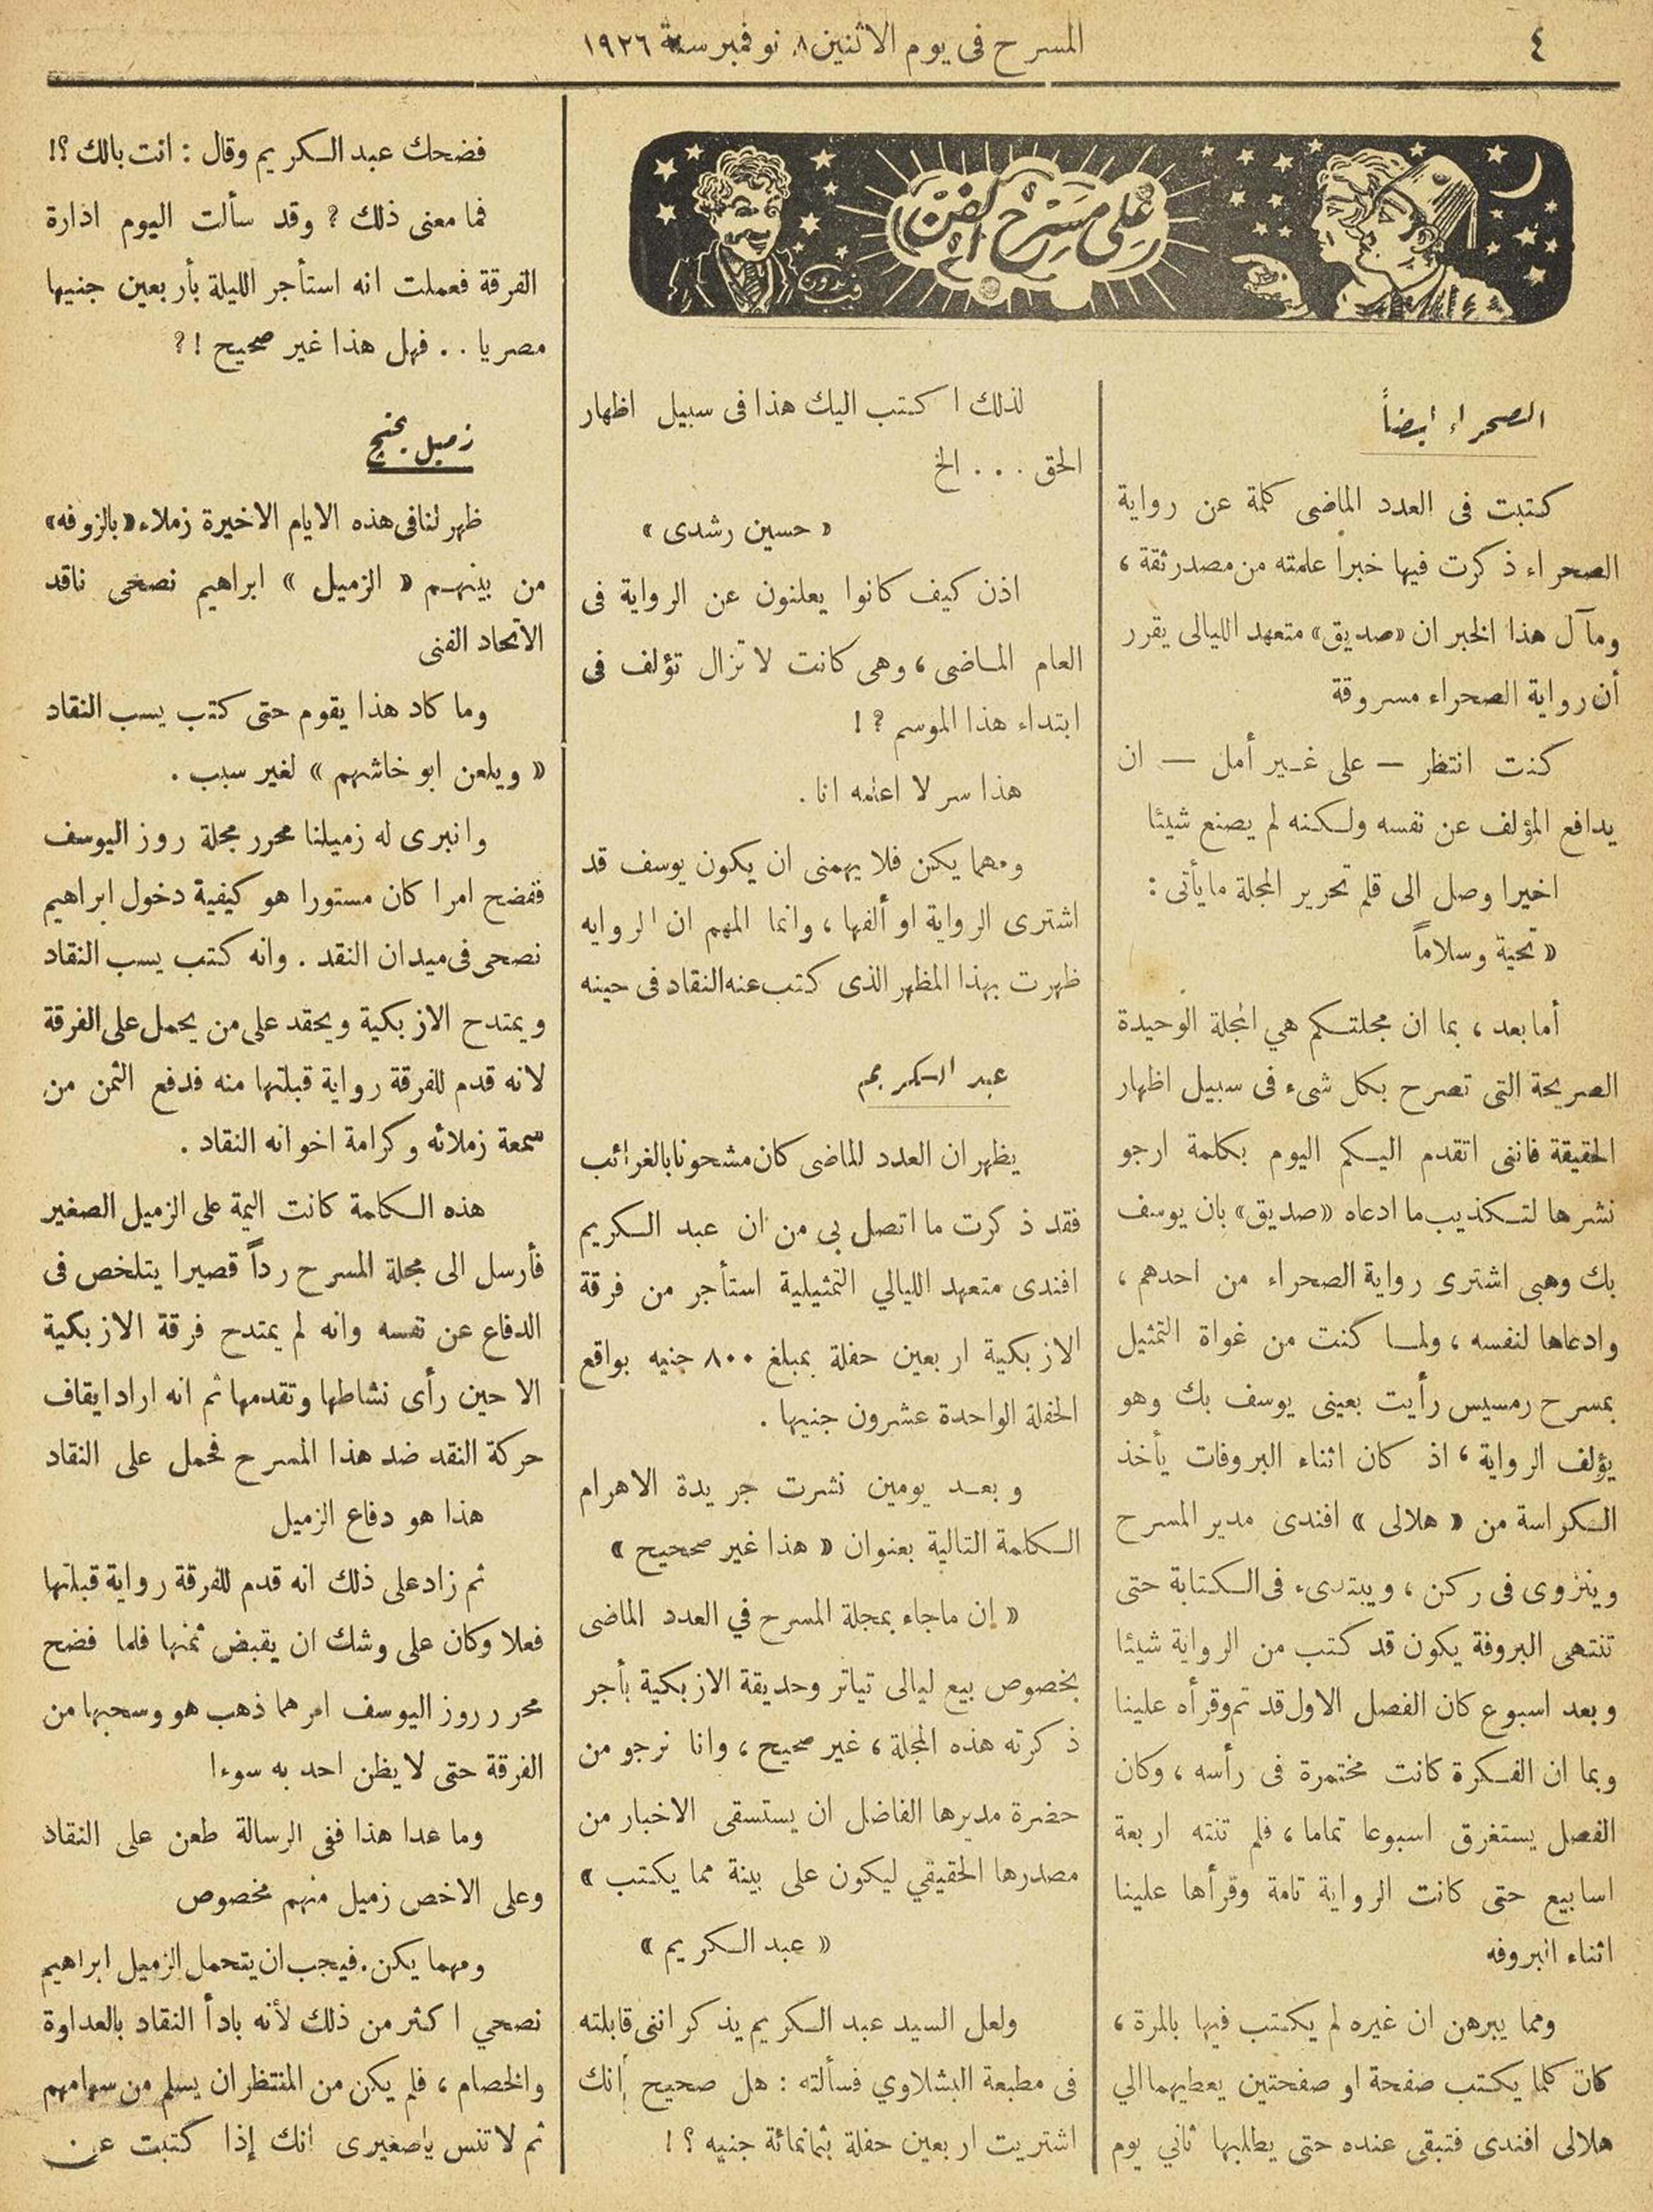 ٤
المسرح فى يوم الاثنين ٨ نوفمبر سنة ١٩٢٦
على مسرح الفن
الصحراء ايضاً
كتبت فى العدد الماضى كلمة عن رواية
الصحراء ذكرت فيها خبراً علمته من مصدر ثقة ،
ومآل هذا الخبر ان «صديق» متعهد الليالى يقرر
أن رواية الصحراء مسروقة
كنت انتظر — على غير أمل — ان
يدافع المؤلف عن نفسه ولكنه لم يصنع شيئا
اخيرا وصل الى قلم تحرير المجلة ما يأتى :
« تحية وسلاماً
أما بعد ، بما ان مجلتكم هي المجلة الوحيدة
الصريحة التى تصرح بكل شىء فى سبيل اظهار
الحقيقة فاننى اتقدم اليكم اليوم بكلمة ارجو
نشرها لتكذيب ما ادعاه «صديق» بان يوسف
بك وهبى اشترى رواية الصحراء من احدهم ،
وادعاها لنفسه ، ولما كنت من غواة التمثيل
بمسرح رمسيس رأيت بعينى يوسف بك وهو
يؤلف الرواية ، اذ كان اثناء البروفات يأخذ
الكراسة من « هلالى » افندى مدير المسرح
وينزوى فى ركن ، ويبتدىء فى الكتابة حتى
تنتهى البروفة يكون قد كتب من الرواية شيئا
وبعد اسبوع كان الفصل الاول قد تم وقرأه علينا
وبما ان الفكرة كانت مختمرة فى رأسه ، وكان
الفصل يستغرق اسبوعا تماما ، فلم تنته اربعة
اسابيع حتى كانت الرواية تامة وقرأها علينا
اثناء البروفه
ومما يبرهن ان غيره لم يكتب فيها بالمرة ،
كان كلما يكتب صفحة او صفحتين يعطيهما الي
هلالى افندى فتبقى عنده حتى يطلبها ثاني يوم
لذلك اكتب اليك هذا فى سبيل اظهار
الحق . . . الخ
« حسين رشدى »
اذن كيف كانوا يعلنون عن الرواية فى
العام الماضى ، وهى كانت لا تزال تؤلف فى
ابتداء هذا الموسم ? !
هذا سر لا اعلمه انا .
ومهما يكن فلا يهمنى ان يكون يوسف قد
اشترى الرواية او ألفها ، وانما المهم ان الروايه
ظهرت بهذا المظهر الذى كتب عنه النقاد فى حينه
عبد الكريم
يظهر ان العدد الماضى كان مشحونا بالغرائب
فقد ذكرت ما اتصل بى من ان عبد الكريم
افندى متعهد الليالي التمثيلية استأجر من فرقة
الازبكية اربعين حفلة بمبلغ ٨٠٠ جنيه بواقع
الحفلة الواحدة عشرون جنيها .
وبعد يومين نشرت جريدة الاهرام
الكلمة التالية بعنوان « هذا غير صححيح »
« إن ماجاء بمجلة المسرح في العدد الماضى
بخصوص بيع ليالى تياتر وحديقة الازبكية بأجر
ذكرته هذه المجلة ، غير صحيح ، وانا نرجو من
حضرة مديرها الفاضل ان يستسقى الاخبار من
مصدرها الحقيقي ليكون على بينة مما يكتب »
« عبد الكريم »
ولعل السيد عبد الكريم يذكر اننى قابلته
فى مطبعة البشلاوي فسألته : هل صحيح أنك
اشتريت اربعين حفلة بثمانمائة جنيه ؟ !
فضحك عبد الكريم وقال : انت بالك ؟!
فما معنى ذلك ? وقد سألت اليوم ادارة
الفرقة فعملت انه استأجر الليلة بأربعين جنيها
مصريا . . فهل هذا غير صحيح ! ?
زميل يحتج
ظهر لنا فى هذه الايام الاخيرة زملاء «بالزوفه»
من بينهم « الزميل » ابراهيم نصحى ناقد
الاتحاد الفنى
وما كاد هذا يقوم حتى كتب يسب النقاد
« ويلعن ابو خاشهم » لغير سبب .
وانبرى له زميلنا محرر مجلة روز اليوسف
ففضح امرا كان مستورا هو كيفية دخول ابراهيم
نصحى فى ميدان النقد . وانه كتب يسب النقاد
ويمتدح الازبكية ويحقد على من يحمل على الفرقة
لانه قدم للفرقة رواية قبلتها منه فدفع الثمن من
سمعة زملائه وكرامة اخوانه النقاد .
هذه الكلمة كانت اليمة على الزميل الصغير
فأرسل الى مجلة المسرح رداً قصيرا يتلخص فى
الدفاع عن نفسه وانه لم يمتدح فرقة الازبكية
الا حين رأى نشاطها وتقدمها ثم انه اراد ايقاف
حركة النقد ضد هذا المسرح فحمل على النقاد
هذا هو دفاع الزميل
ثم زاد على ذلك انه قدم للفرقة رواية قبلتها
فعلا وكان على وشك ان يقبض ثمنها فلما فضح
محرر روز اليوسف امرهما ذهب هو وسحبها من
الفرقة حتى لا يظن احد به سوءا
وما عدا هذا ففى الرسالة طعن على النقاد
وعلى الاخص زميل منهم مخصوص
ومهما يكن . فيجب ان يتحمل الزميل ابراهيم
نصحي اكثر من ذلك لأنه بادأ النقاد بالعداوة
والخصام ، فلم يكن من المنتظر ان يسلم من سهامهم
ثم لا تنس ياصغيرى انك إذا كتبت عن